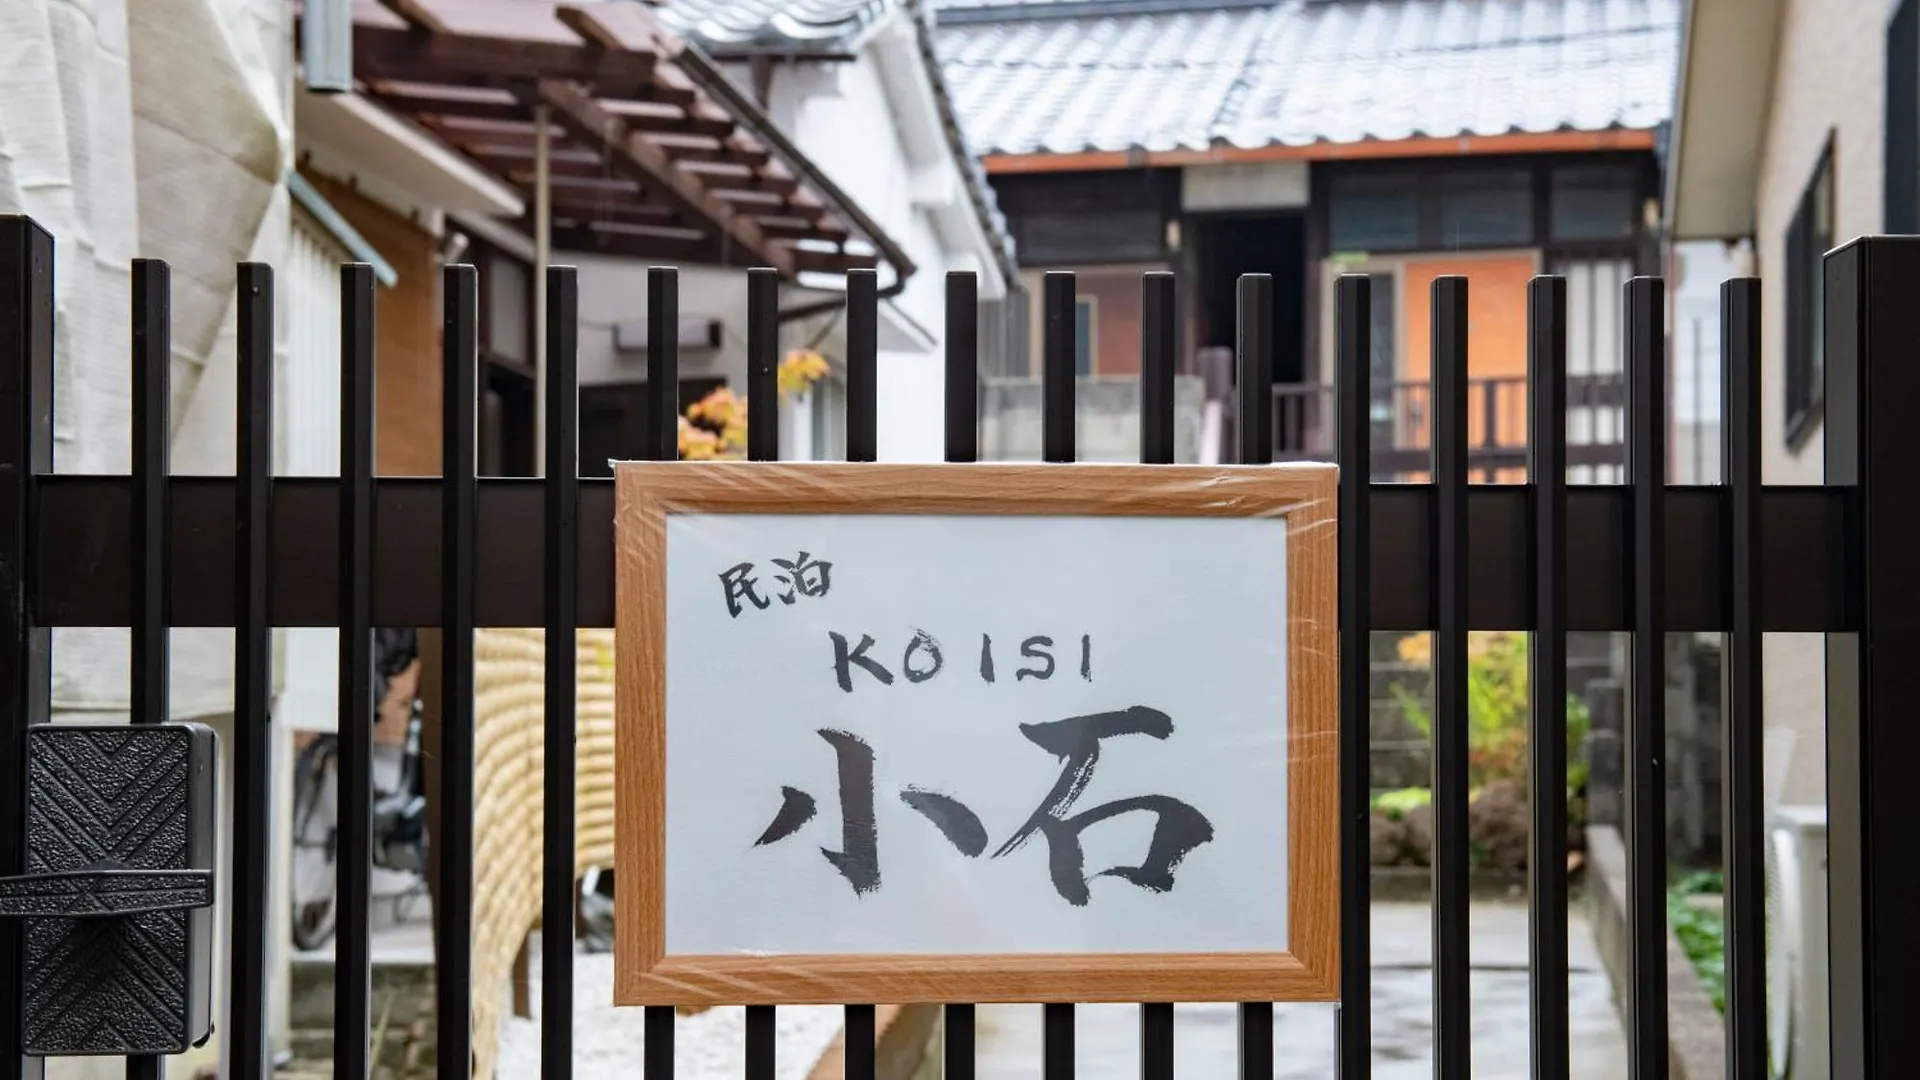 民泊
KOISI
小石